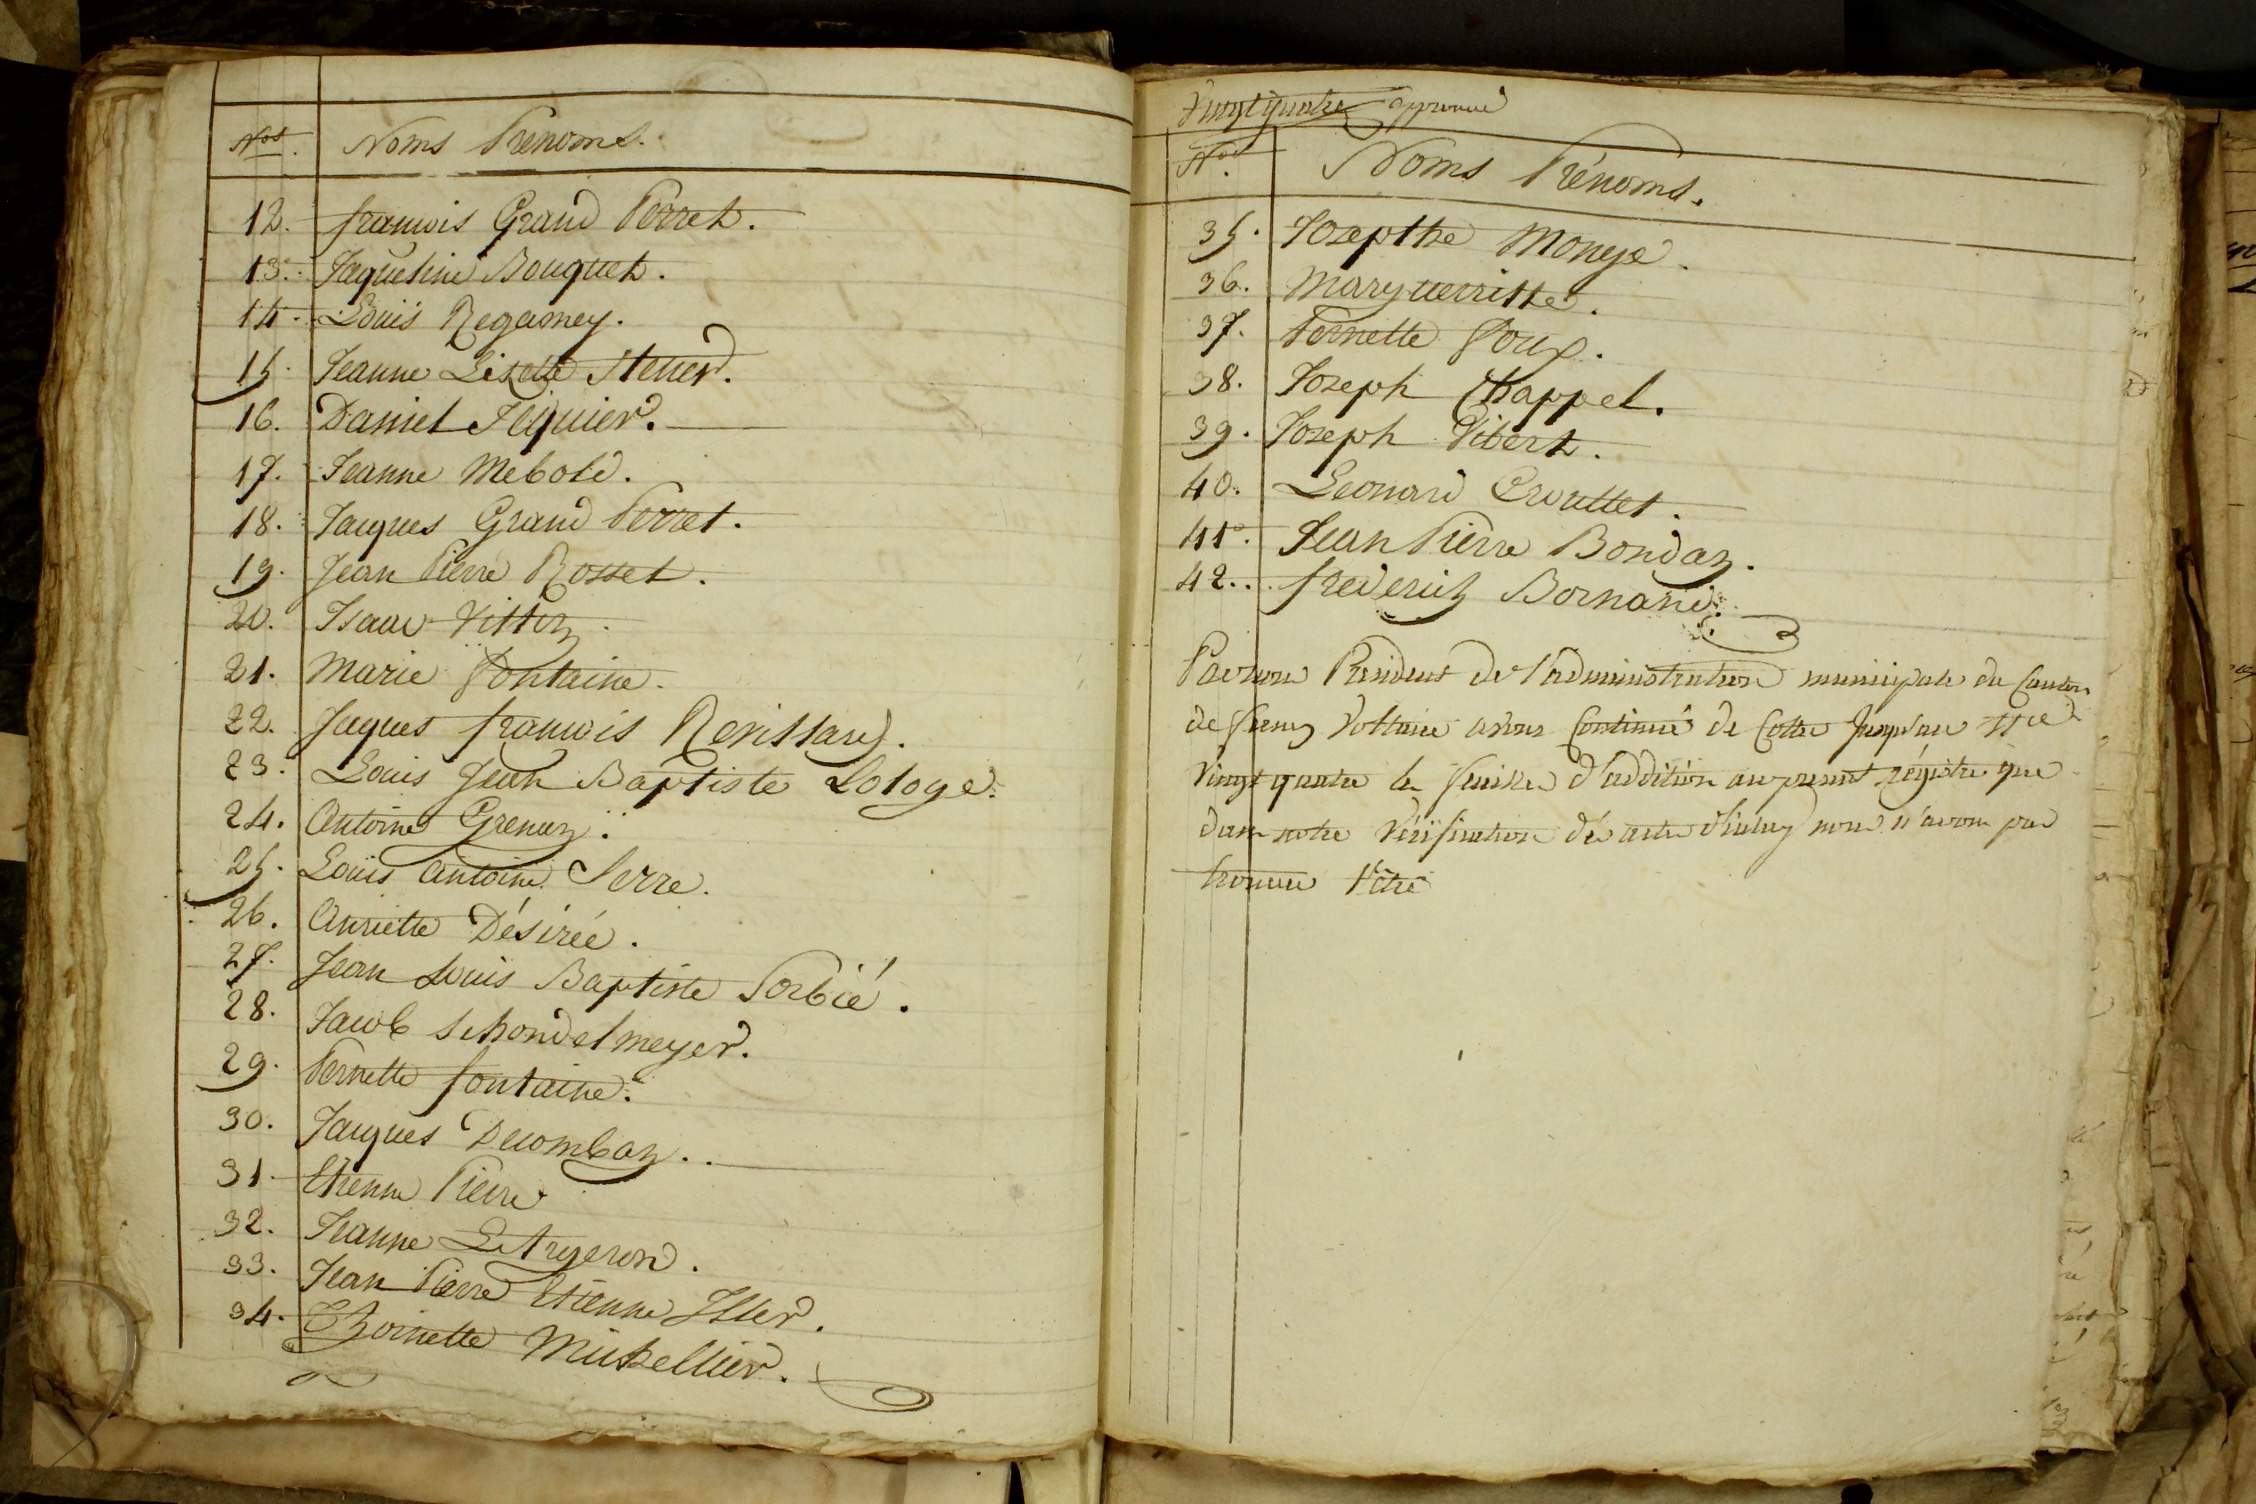 Nos. Noms Prenoms.
12. francois Grand Perret.
13. Jaqueline Bouquet.
14. Louis Regamey.
15. Jeanne Lisette Steuer.
16. Daniel Jequier.
17. Jeanne Mebold.
18. Jacques Grand Perret.
19. Jean Pierre Rosset.
20. Isaac Vittoz.
21. Marie Fontaine.
22. Jaques francois Revissard.
23. Louis Jean Baptiste Lologe.
24. Antoine Grenuz.
25. Louis Antoine Serre.
26. Anriette Désirée.
27. Jean Louis Baptiste Sorbié.
28. Jacob Schondelmeyer.
29. Pernette fontaine.
30. Jacques Decombaz.
31. Etienne Pierre
32. Jeanne
33. Jean Pierre Etienne Itier.
34. Thoinette
Vingt quatre approuvé
No. Noms Prénoms.
35. Josepthe Monge.
36. Marguerritte.
37. Pernette Foux.
38. Joseph Chappel.
39. Joseph Vibert.
40. Leonard Crouttet.
41. Jean Pierre Bondaz.
42. frederich Bornand.
President de l'administration municipale du Canton
de ferney Voltaire avons Continué de Cotter Jusqu'au
Vingt quatre la feuille d'addition au present régistre que
dans notre Vérifination des actes nous n'avons pas
trouvée l'être